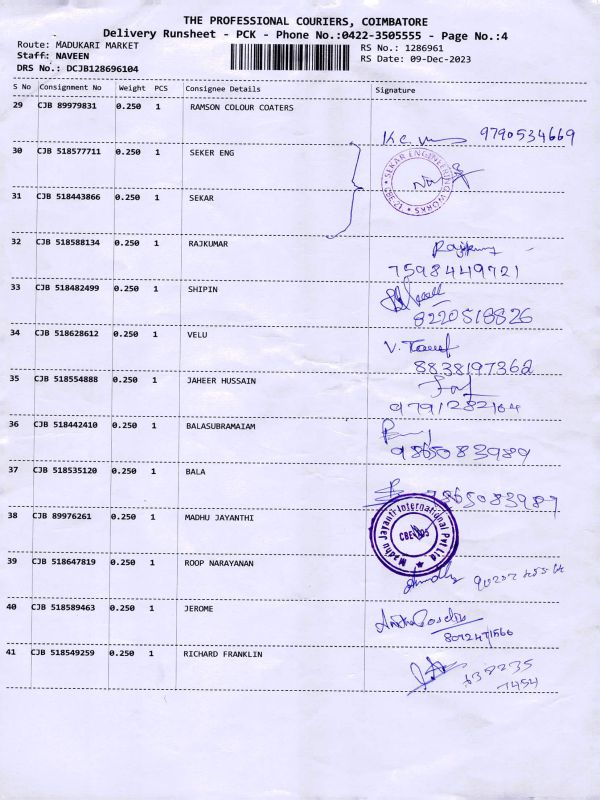 THE PROFESSIONAL COURIERS, COIMBATORE
Delivery Runsheet - PCK - Phone No.:0422-3505555 - Page No.:4
Route: MADUKARI MARKET
RS No.: 1286961
Staff: NAVEEN
RS Date: 09-Dec-2023
DRS No.: DCJB128696104
S No Consignment No Weight PCS Consignee Details Signature
29 CJB 89979831 0.250 1 RAMSON COLOUR COATERS
9790534669
30 CJB 518577711 0.250 1 SEKER ENG
SEKAR ENGINEERING WORKS
31 CJB 518443866 0.250 1 SEKAR
32 CJB 518588134 0.250 1 RAJKUMAR
7598449721
33 CJB 518482499 0.250 1 SHIPIN
8220518826
34 CJB 518628612 0.250 1 VELU
8838197362
35 CJB 518554888 0.250 1 JAHEER HUSSAIN
36 CJB 518442410 0.250 1 BALASUBRAMAIAM
9865083989
37 CJB 518535120 0.250 1 BALA
38 CJB 89976261 0.250 1 MADHU JAYANTHI
Madhu Jayanti International Pvt Ltd
39 CJB 518647819 0.250 1 ROOP NARAYANAN
40 CJB 518589463 0.250 1 JEROME
41 CJB 518549259 0.250 1 RICHARD FRANKLIN